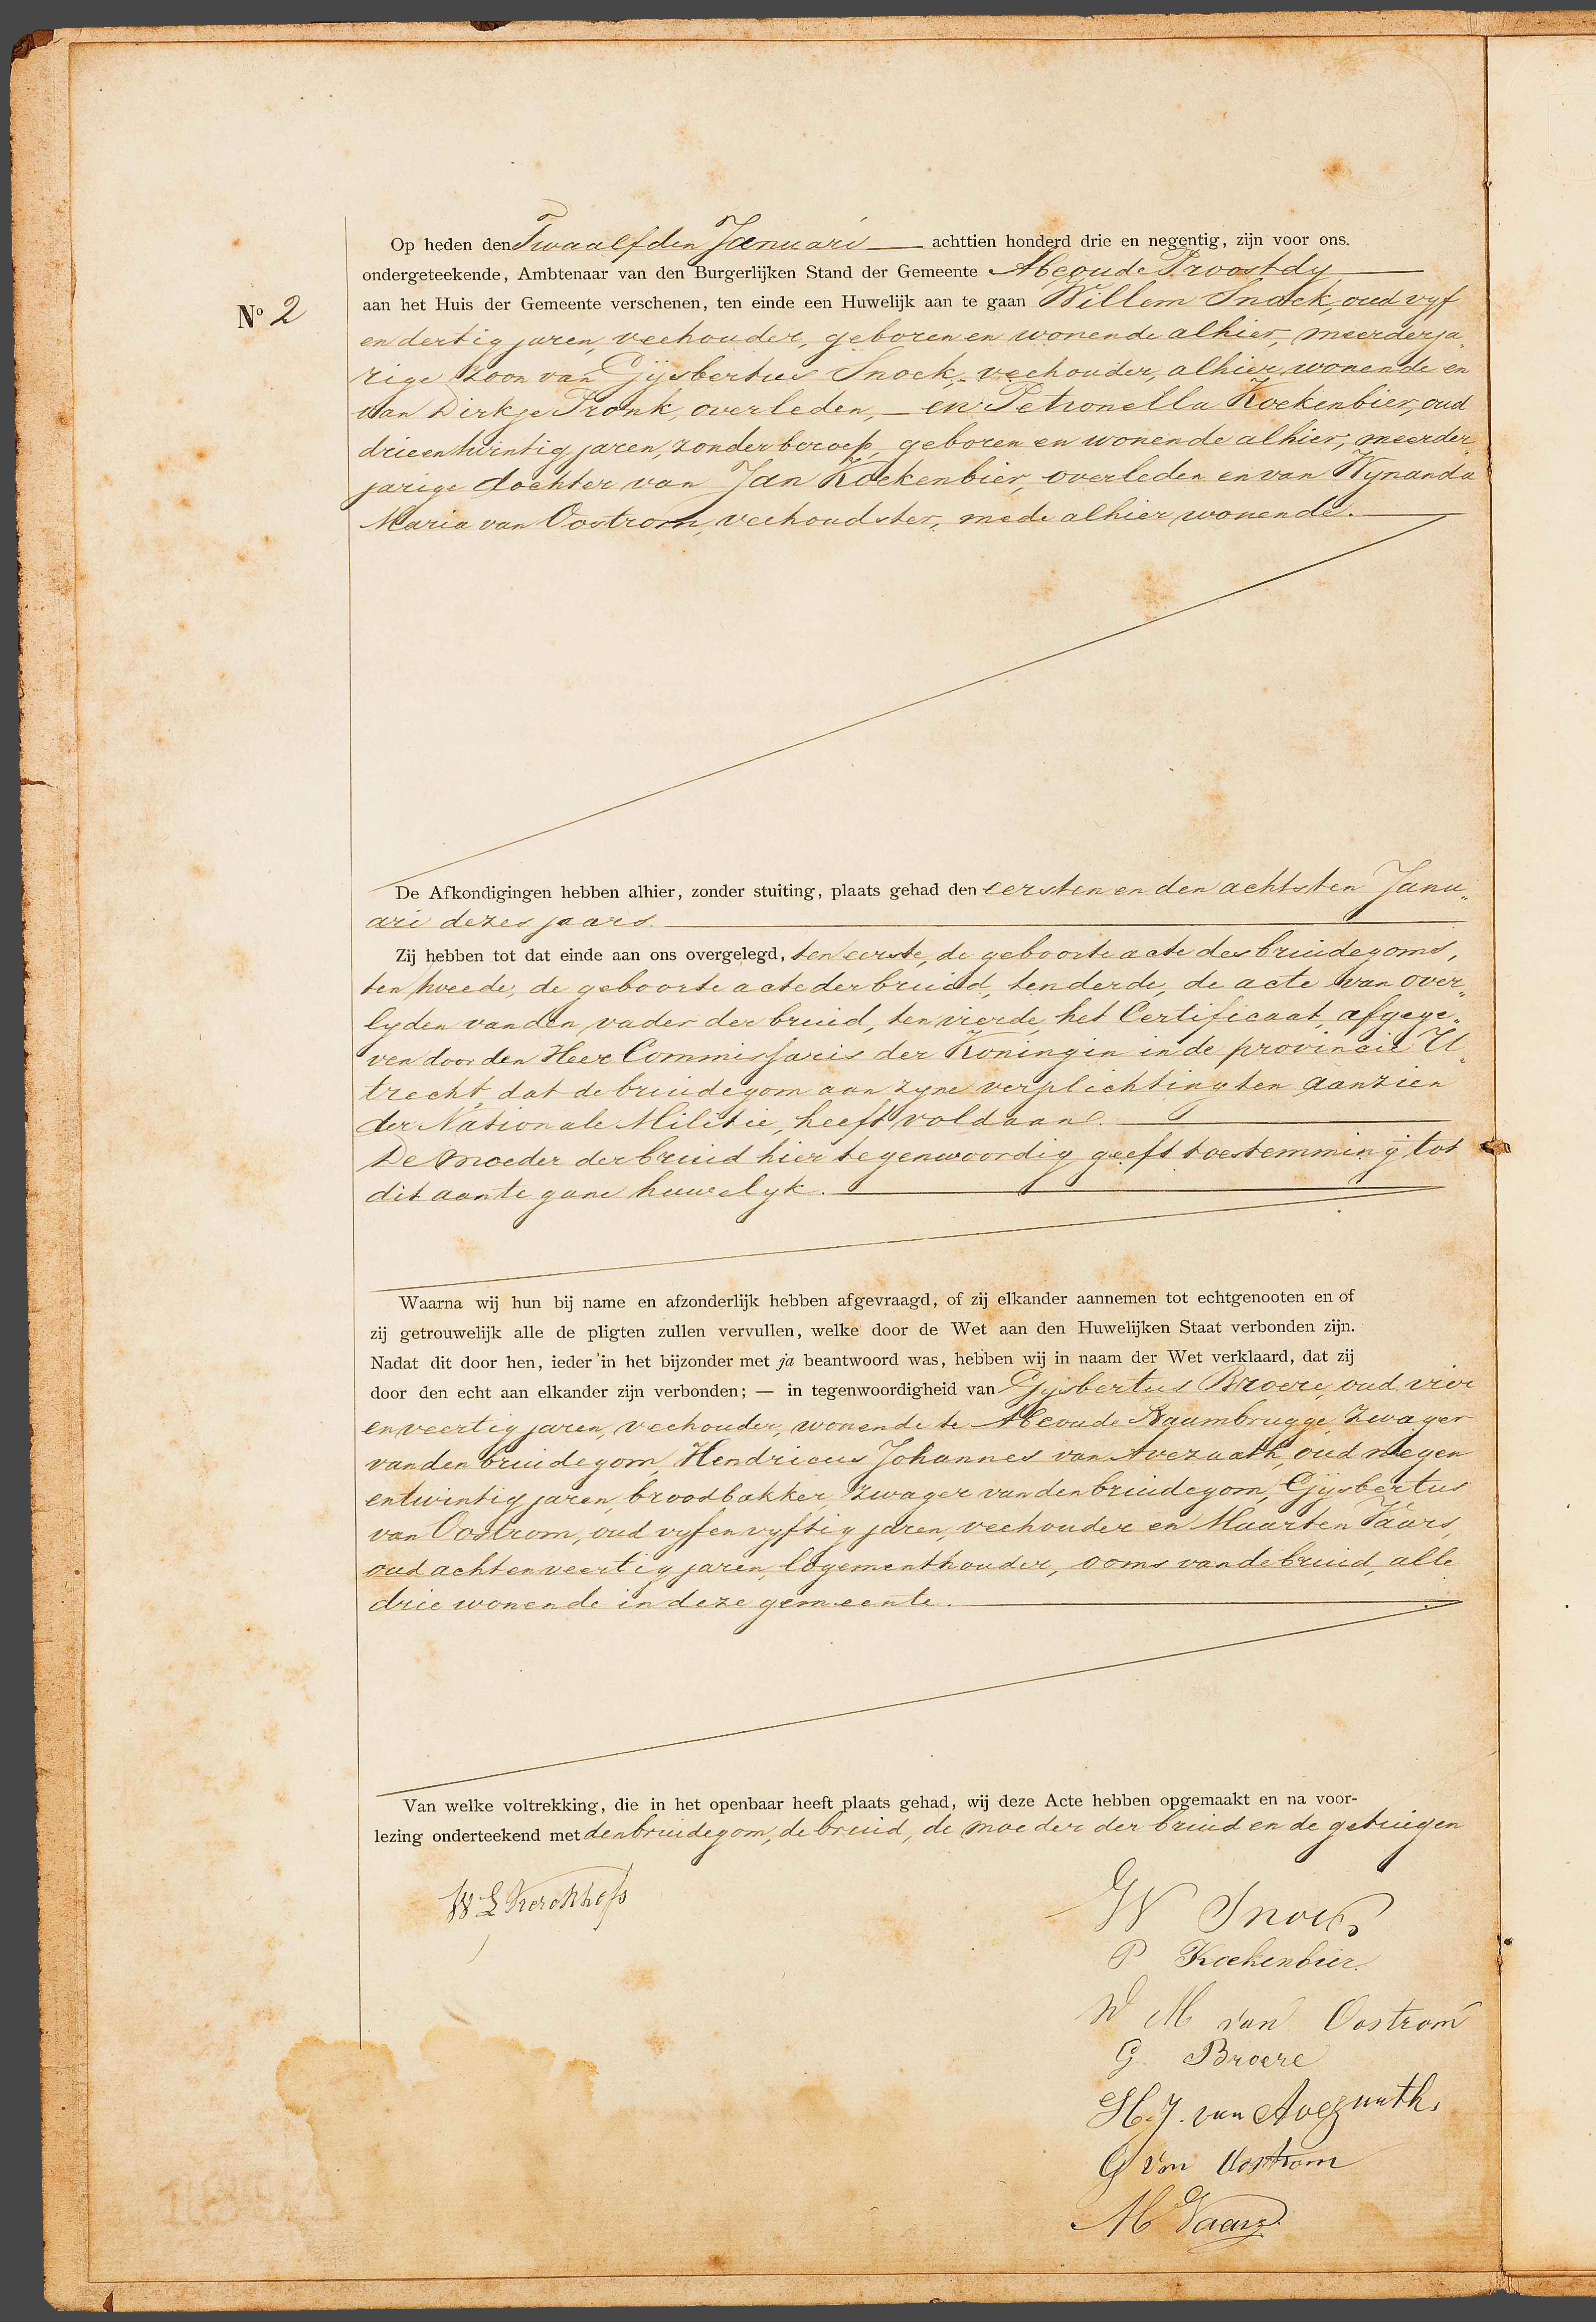 Op heden den Twaalfden Januari achttien honderd drie en negentig, zijn voor ons.
ondergeteekende, Ambtenaar van den Burgerlijken Stand der Gemeente Abcoude Proostdy
Nº 2
aan het Huis der Gemeente verschenen, ten einde een Huwelijk aan te gaan Willem Snoek, oud vyf
en dertig jaren, veehouder, geboren en wonende alhier, meerderja„
rige zoon van Gijsbertus Snoek, veehouder, alhier wonende en
van Dirkje Pronk, overleden, — en Petronella Koekenbier, oud
drieentwintig jaren, zonder beroep, geboren en wonende alhier, meerder
jarige dochter van Jan Koekenbier, overleden en van Wynanda
Maria van Oostrom, veehoudster, mede alhier wonende.
De Afkondigingen hebben alhier, zonder stuiting, plaats gehad den eersten en den achtsten Janu„
ari dezes jaars.
Zij hebben tot dat einde aan ons overgelegd, ten eerste, de geboorte acte des bruidegoms,
ten tweede, de geboorte acte der bruid, ten derde, de acte van over„
lyden van den vader der bruid, ten vierde, het Certificaat, afgege„
ven door den Heer Commissaris der Koningin in de provincie U„
trecht, dat de bruidegom aan zyne verplichting ten aanzien
der Nationale Militie, heeft voldaan.
De moeder der bruid hier tegenwoordig geeft toestemming tot
dit aan te gane huwelyk.
Waarna wij hun bij name en afzonderlijk hebben afgevraagd, of zij elkander aannemen tot echtgenooten en of
zij getrouwelijk alle de pligten zullen vervullen, welke door de Wet aan den Huwelijken Staat verbonden zijn.
Nadat dit door hen, ieder in het bijzonder met ja beantwoord was, hebben wij in naam der Wet verklaard, dat zij
door den echt aan elkander zijn verbonden; — in tegenwoordigheid van Gysbertus Broere, oud vier
en veertig jaren, veehouder, wonende te Abcoude Baambrugge, zwager
van den bruidegom, Hendricus Johannes van Avezaath, oud negen
entwintig jaren, broodbakker, zwager van den bruidegom, Gysbertus
van Oostrom, oud vyfenvyftig jaren, veehouder en Maarten Vaars,
oud achtenveertig jaren, logementhouder, ooms van de bruid, alle
drie wonende in deze gemeente.
Van welke voltrekking, die in het openbaar heeft plaats gehad, wij deze Acte hebben opgemaakt en na voor-
lezing onderteekend met den bruidegom, de bruid, de moeder der bruid en de getuigen
W L Kerckhofs
W Snoek
P Koekenbier.
W M van Oostrom
G. Broere
H. J. van Avezaath.
G van Oostrom
M Vaars